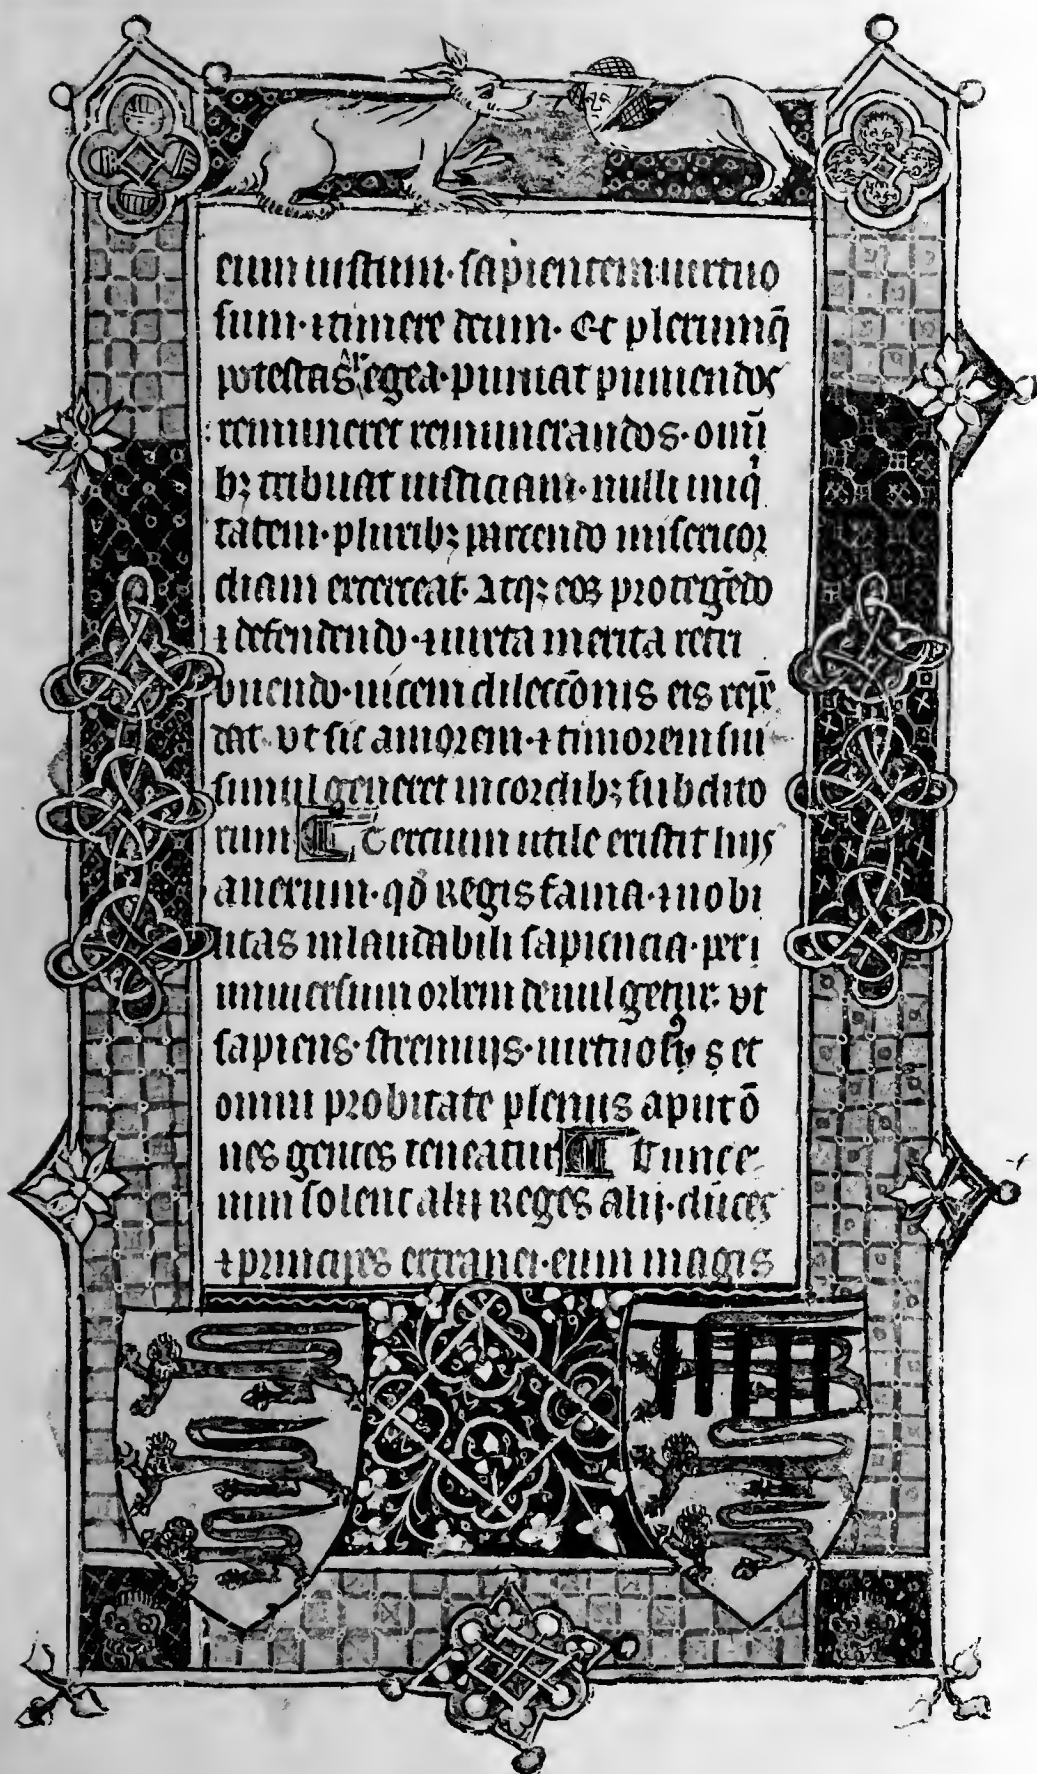 eum iustum· sapientem· uirtuo
sum· ⁊ timere deum· Et plerumq̄
potestas regea· puniat puniendos
remuneret remunerandos· omni
bꝫ tribuat iusticiam· nulli iniq̇
tatem· pluribꝫ parcendo misericor
diam exerceat· Atqꝫ eos protegēdo
⁊ defendendo· ⁊ iuxta merita retri
buendo· uicem dilecc̄onis eis repē
dat· ut sic amorem· ⁊ timorem sui
simul generet in cordibꝫ subdito
rum Tercium utile existit huiꝰ
auctum· qd̄ Regis fama· ⁊ nobi
litas in laudabili sapiencia· per
uniuersum orbem deuulgetur· ut
sapiens· strenuus· uirtuosꝰ s et
omni probitate plenus aput ō
nes gentes teneatur Tunc e
nim solent alii Reges alii· duces
⁊ principes extranei· eum magis